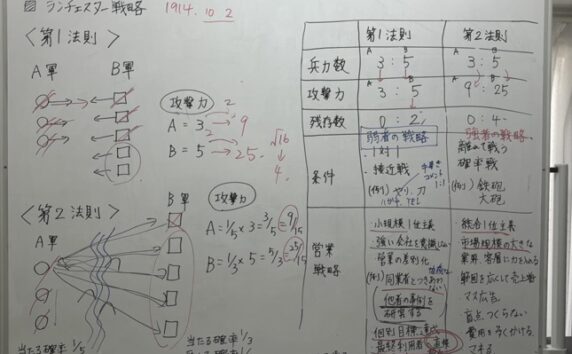 ランチェスター戦略 1914. 10 2
<第1法則>
A軍 B軍
攻撃力
A = 3 → 9
2
B = 5 → 25.
2
√16
4.
<第2法則>
A軍
B軍
攻撃力
A = 1/5 × 3 = 3/5 = 9/15
B = 1/3 × 5 = 5/3 = 25/15
当たる確率 1/3
当たる確率 1/5
第1法則 第2法則
兵力数
A B
3 : 5
A B
3 : 5
攻撃力
3 : 5
9 : 25
残存数
0 : 2
0 : 4
条件
弱者の戦略
・1対1
・接近戦
(例) やり、刀
強者の戦略
離れて戦う
確率戦
(例) 鉄砲
大砲
営業
戦略
・小規模1位主義
・強い会社を意識しない
・営業の差別化
(例) 同業者とつきあわない
他者の事例を
研究する
個別目標達成
最終利用者に直接
・総合1位主義
・市場規模の大きな
業界、客層に力を入れる
範囲を広くして売上増
・マス広告
・盲点つくらない
費用を多くかける
・マネる